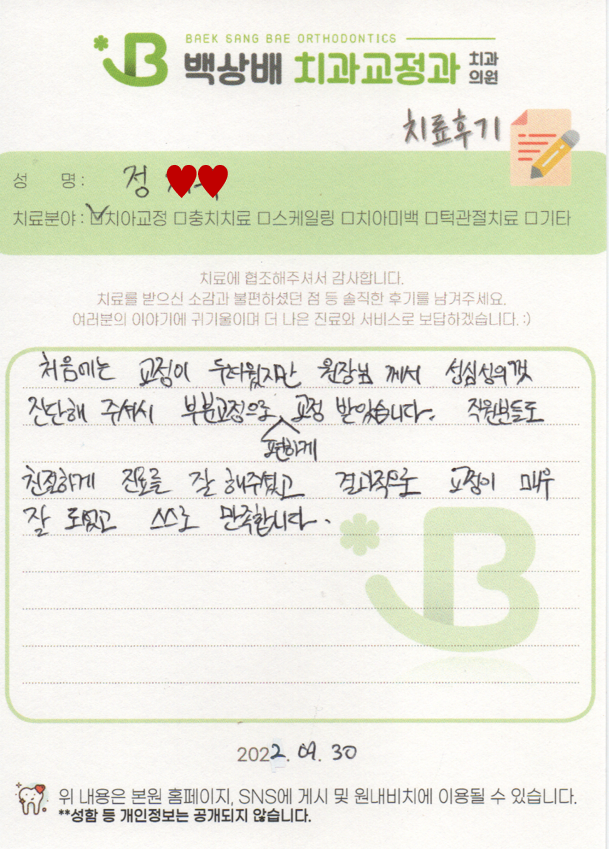 BAEK SANG BAE ORTHODONTICS
백상배 치과교정과 치과의원
치료후기
성 명 : 정
치료분야 : ☑치아교정 □충치치료 □스케일링 □치아미백 □턱관절치료 □기타
치료에 협조해주셔서 감사합니다.
치료를 받으신 소감과 불편하셨던 점 등 솔직한 후기를 남겨주세요.
여러분의 이야기에 귀기울이며 더 나은 진료와 서비스로 보답하겠습니다. :)
처음에는 교정이 두려웠지만 원장님 께서 성심성의껏
진단해 주셔서 부분교정으로 교정 받았습니다. 직원분들도
편하게
친절하게 진료를 잘 해주셨고 결과적으로 교정이 매우
잘 되었고 스스로 만족합니다.
2022. 09. 30
위 내용은 본원 홈페이지, SNS에 게시 및 원내비치에 이용될 수 있습니다.
**성함 등 개인정보는 공개되지 않습니다.